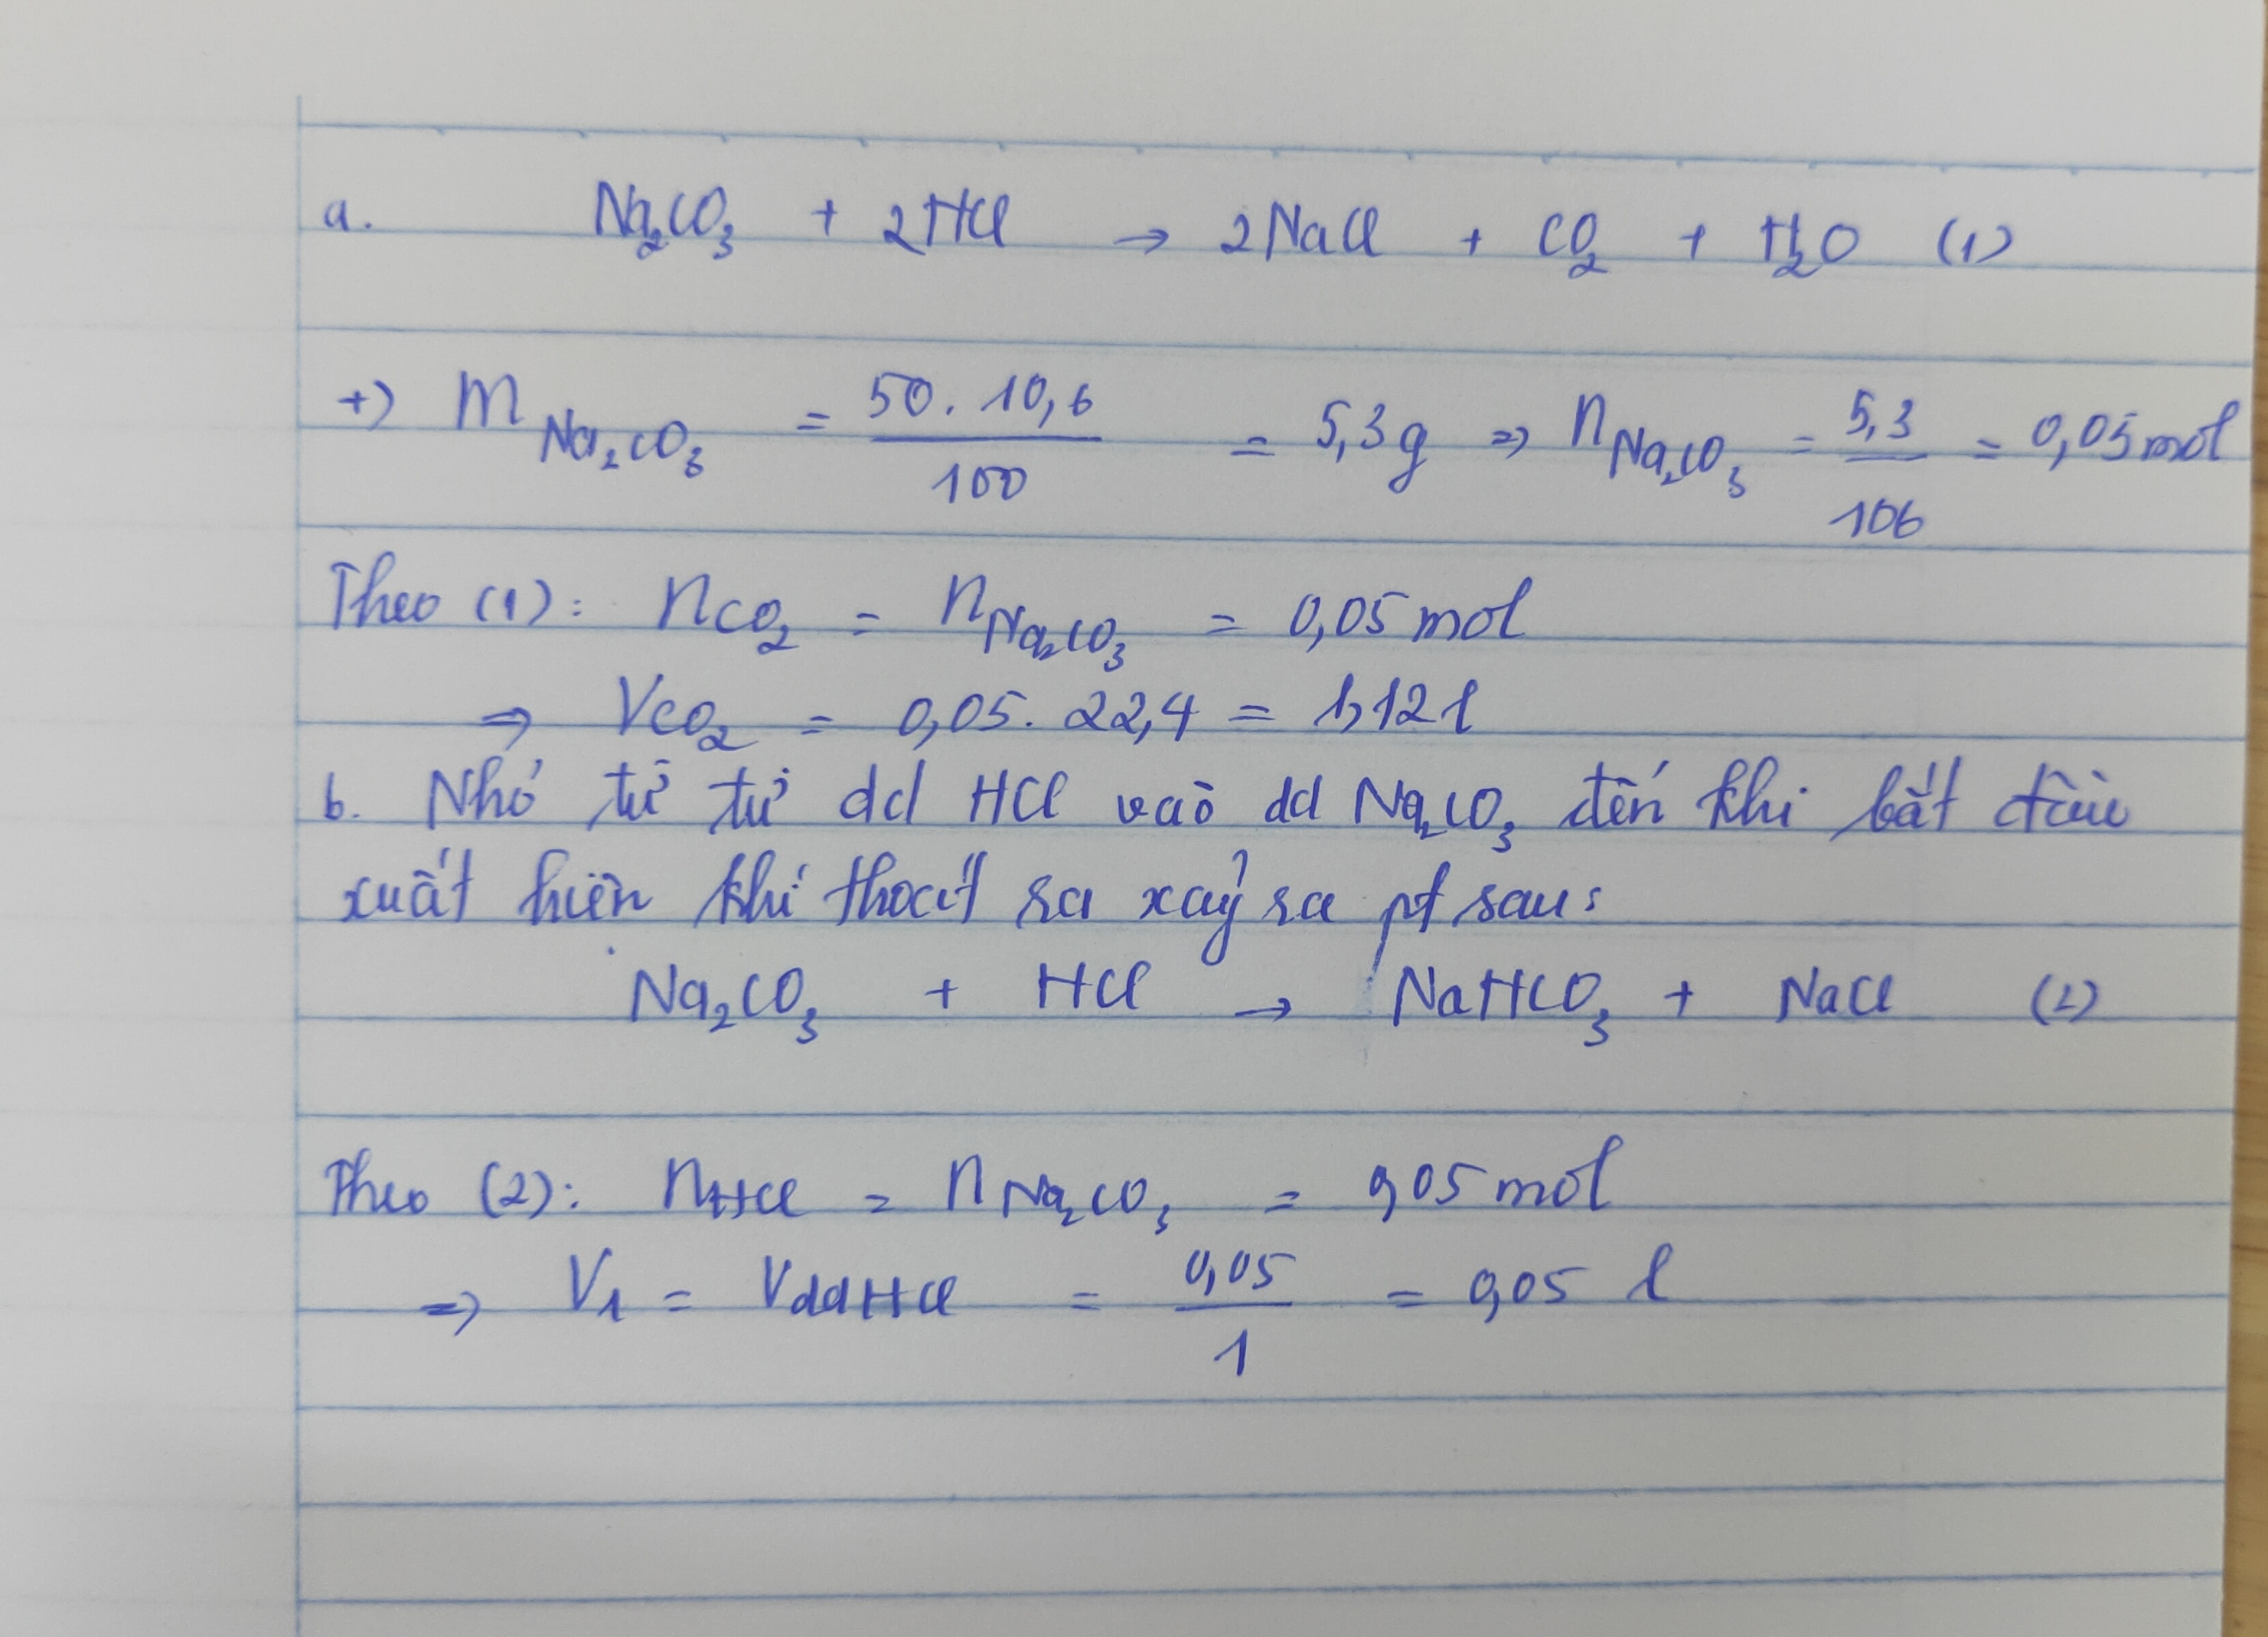 a. Na₂CO₃ + 2HCl → 2NaCl + CO₂ + H₂O (1)
+) m Na₂CO₃ = 50. 10,6 / 100 = 5,3g => n Na₂CO₃ = 5,3 / 106 = 0,05 mol
Theo (1): nCO₂ = n Na₂CO₃ = 0,05 mol
=> VCO₂ = 0,05. 22,4 = 1,12 l
b. Nhỏ từ từ dd HCl vào dd Na₂CO₃ đến khi bắt đầu
xuất hiện khí thoát ra xảy ra pt sau:
Na₂CO₃ + HCl → NaHCO₃ + NaCl (2)
Theo (2): nHCl = n Na₂CO₃ = 0,05 mol
=> V₁ = VddHCl = 0,05 / 1 = 0,05 l